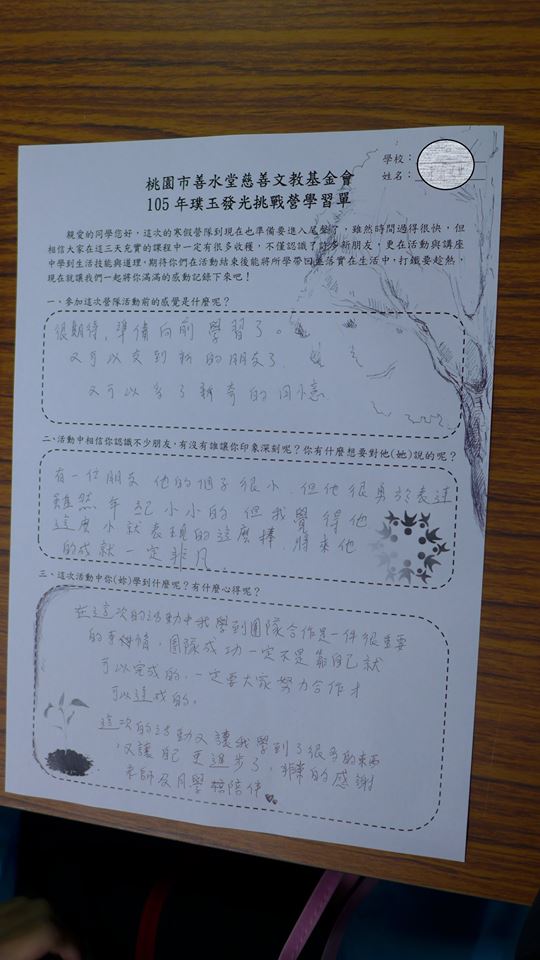 學校：
姓名：
桃園市善水堂慈善文教基金會
105年璞玉發光挑戰營學習單
親愛的同學您好，這次的寒假營隊到現在也準備要進入尾聲了，雖然時間過得很快，但
相信大家在這三天充實的課程中一定有很多收穫，不僅認識了許多新朋友，更在活動與講座
中學到生活技能與道理，期待你們在活動結束後能將所學帶回並落實在生活中，打鐵要趁熱，
現在就讓我們一起將你滿滿的感動記錄下來吧！
一、參加這次營隊活動前的感覺是什麼呢？
很期待，準備向前學習了。
又可以交到新的朋友了.
又可以多了新奇的回憶
二、活動中相信你認識不少朋友，有沒有誰讓你印象深刻呢？你有什麼想要對他(她)說的呢？
有一位朋友 他的個子很小，但他很勇於表達
雖然年紀小小的 但我覺得他
這麼小就表現的這麼棒，將來他
的成就一定非凡。
三、這次活動中你(妳)學到什麼呢？有什麼心得呢？
在這次的活動中我學到團隊合作是一件很重要
的事情，團隊成功一定不是靠自己就
可以完成的，一定要大家努力合作才
可以達成的。
這次的活動又讓我學到了很多的東西
，又讓自己更進步了，非常的感謝
老師及同學陪伴